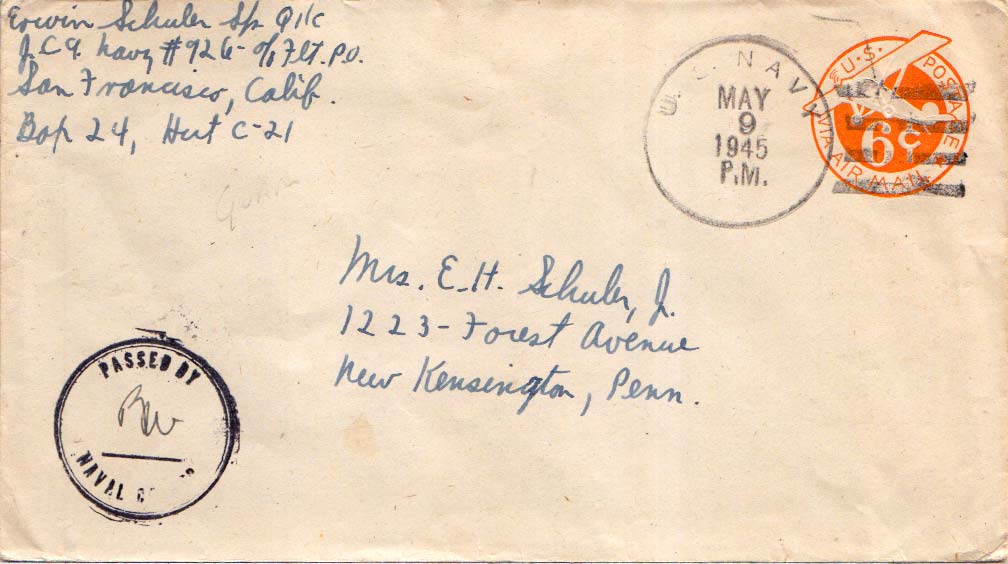 Erwin Schuler Sp. Q 1/c
J.C.9. Navy #926 - c/o Flt. P.O.
San Francisco, Calif.
Box 24, Hut C-21
Guam
U.S. NAVY
MAY
9
1945
P.M.
U.S. POSTAGE
6¢
VIA AIR MAIL
Mrs. E.H. Schuler, J.
1223 - Forest Avenue
New Kensington, Penn.
PASSED BY
NAVAL